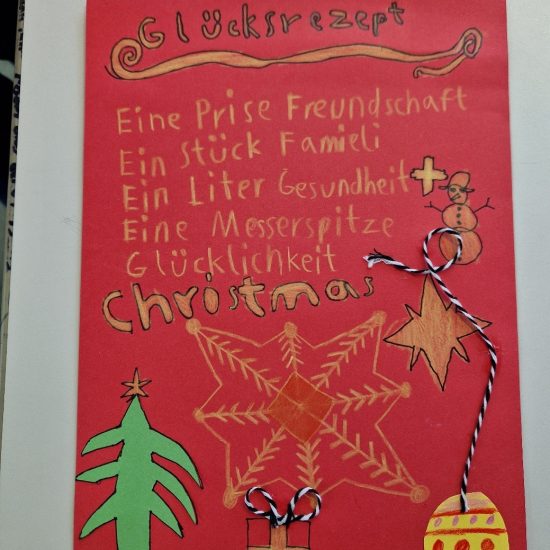 Glücksrezept
Eine Prise Freundschaft
Ein Stück Famieli
Ein Liter Gesundheit +
Eine Messerspitze
Glücklichkeit
Christmas